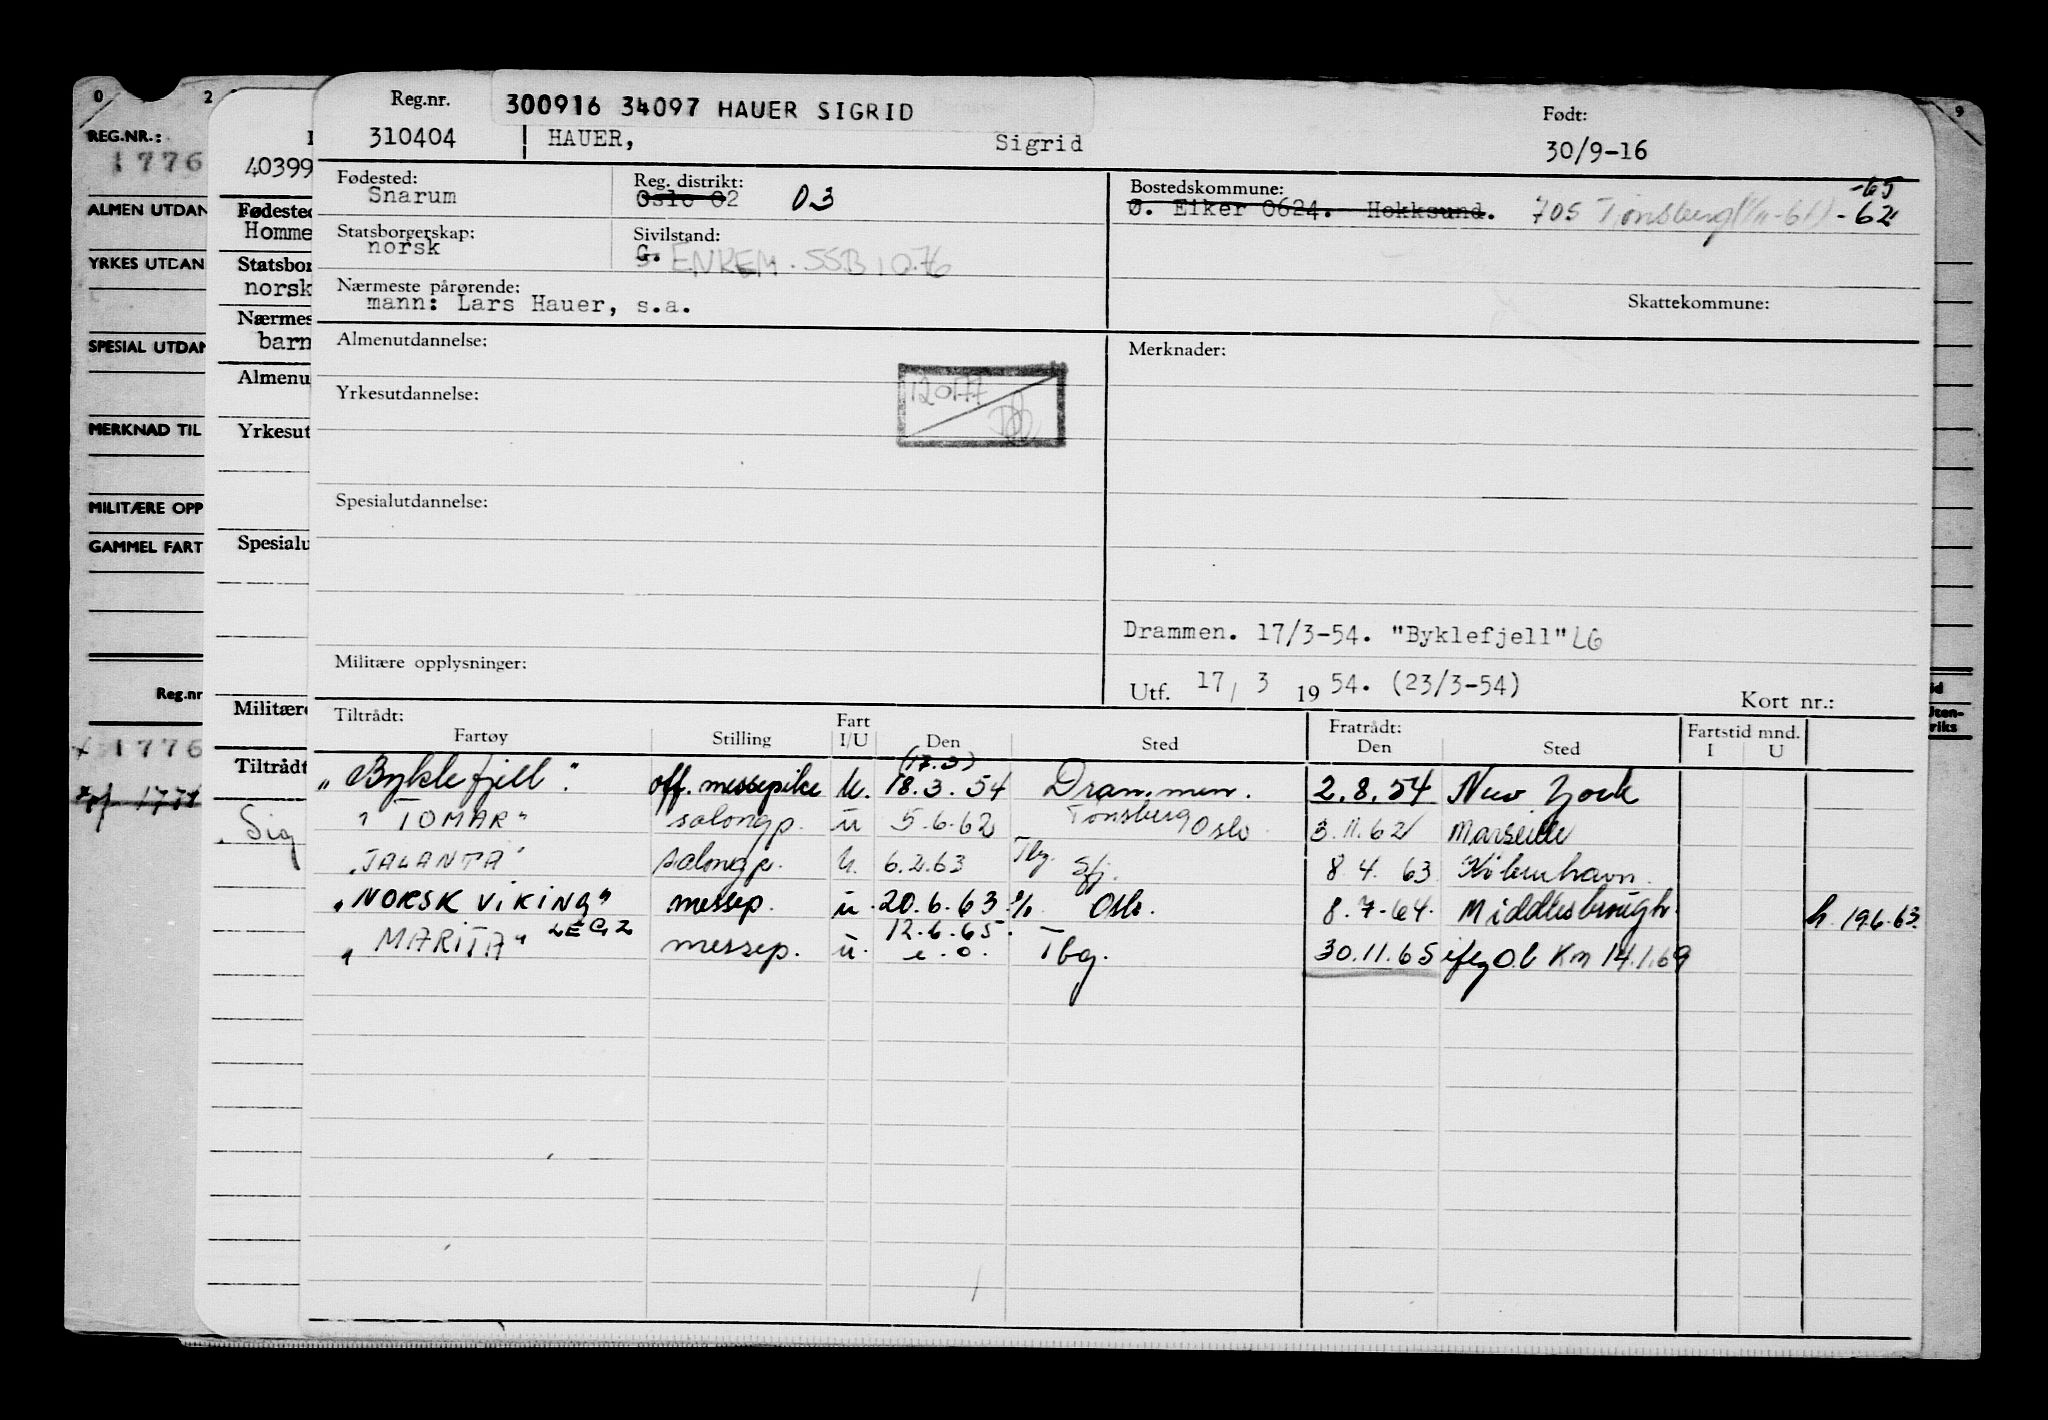 0 2 9
REG.NR.:
1776
ALMEN UTDAN
YRKES UTDAN
SPESIAL UTDAN
MERKNAD TIL
MILITÆRE OPP
GAMMEL FART
Reg.nr
1776
40399
Fødested
Homme
Statsbor
norsk
Nærmes
barn
Almenu
Yrkesut
Spesialu
Militære
Tiltrådt
Sig
Reg.nr. 300916 34097 HAUER SIGRID Født:
310404 HAUER, Sigrid 30/9-16
Fødested: Reg. distrikt: Bostedskommune: -65
Snarum Oslo 02 03 Ø. Eiker 0624. Hokksund. 705 Tønsberg -62
Statsborgerskap: Sivilstand:
norsk G. ENKEM. SSB 10.76
Nærmeste pårørende: Skattekommune:
mann: Lars Hauer, s.a.
Almenutdannelse: Merknader:
Yrkesutdannelse:
Spesialutdannelse:
Drammen. 17/3-54. "Byklefjell" LG
Militære opplysninger:
Utf. 17/3 1954. (23/3-54) Kort nr.:
Tiltrådt: Fart Fratrådt: Fartstid mnd.
Fartøy Stilling I/U Den Sted Den Sted I U
(17.3)
"Byklefjell". off. messepike U. 18.3.54 Drammen. 2.8.54 New York
"TOMAR" salongp. u 5.6.62 Tønsberg Oslo 3.11.62 Marseille
"JALANTA" salongp. U. 6.2.63 Tbg. Sfj. 8.4.63 København.
"NORSK VIKING" messep. u. 20.6.63 Oslo. 8.7-64. Middlesbrough. h. 19.6.63.
"MARITA" LEGZ messep. u. 12.6.65. e.o. Tbg. 30.11.65 iflg O.b Km 14.1.69